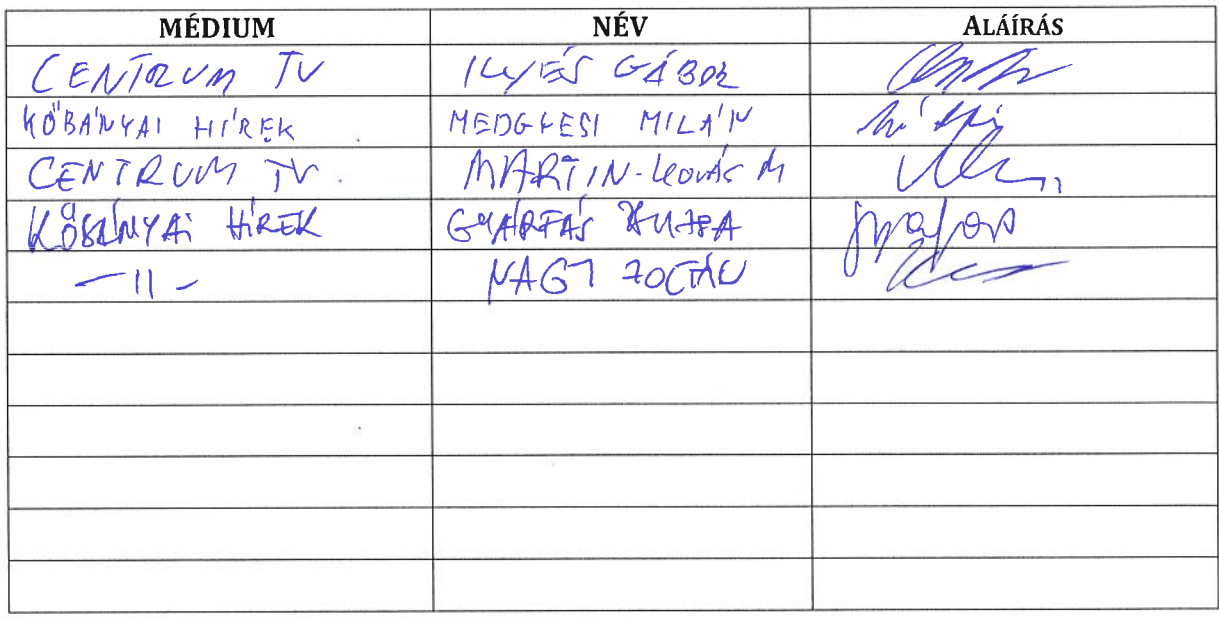 MÉDIUM NÉV ALÁÍRÁS
CENTRUM TV ILLYÉS GÁBOR
KŐBÁNYAI HÍREK MEDGYESI MILÁN
CENTRUM TV. MARTIN-KOVÁCS M
KŐBÁNYAI HÍREK GYÁRFÁS ZSUZSA
-11- NAGY ZOLTÁN